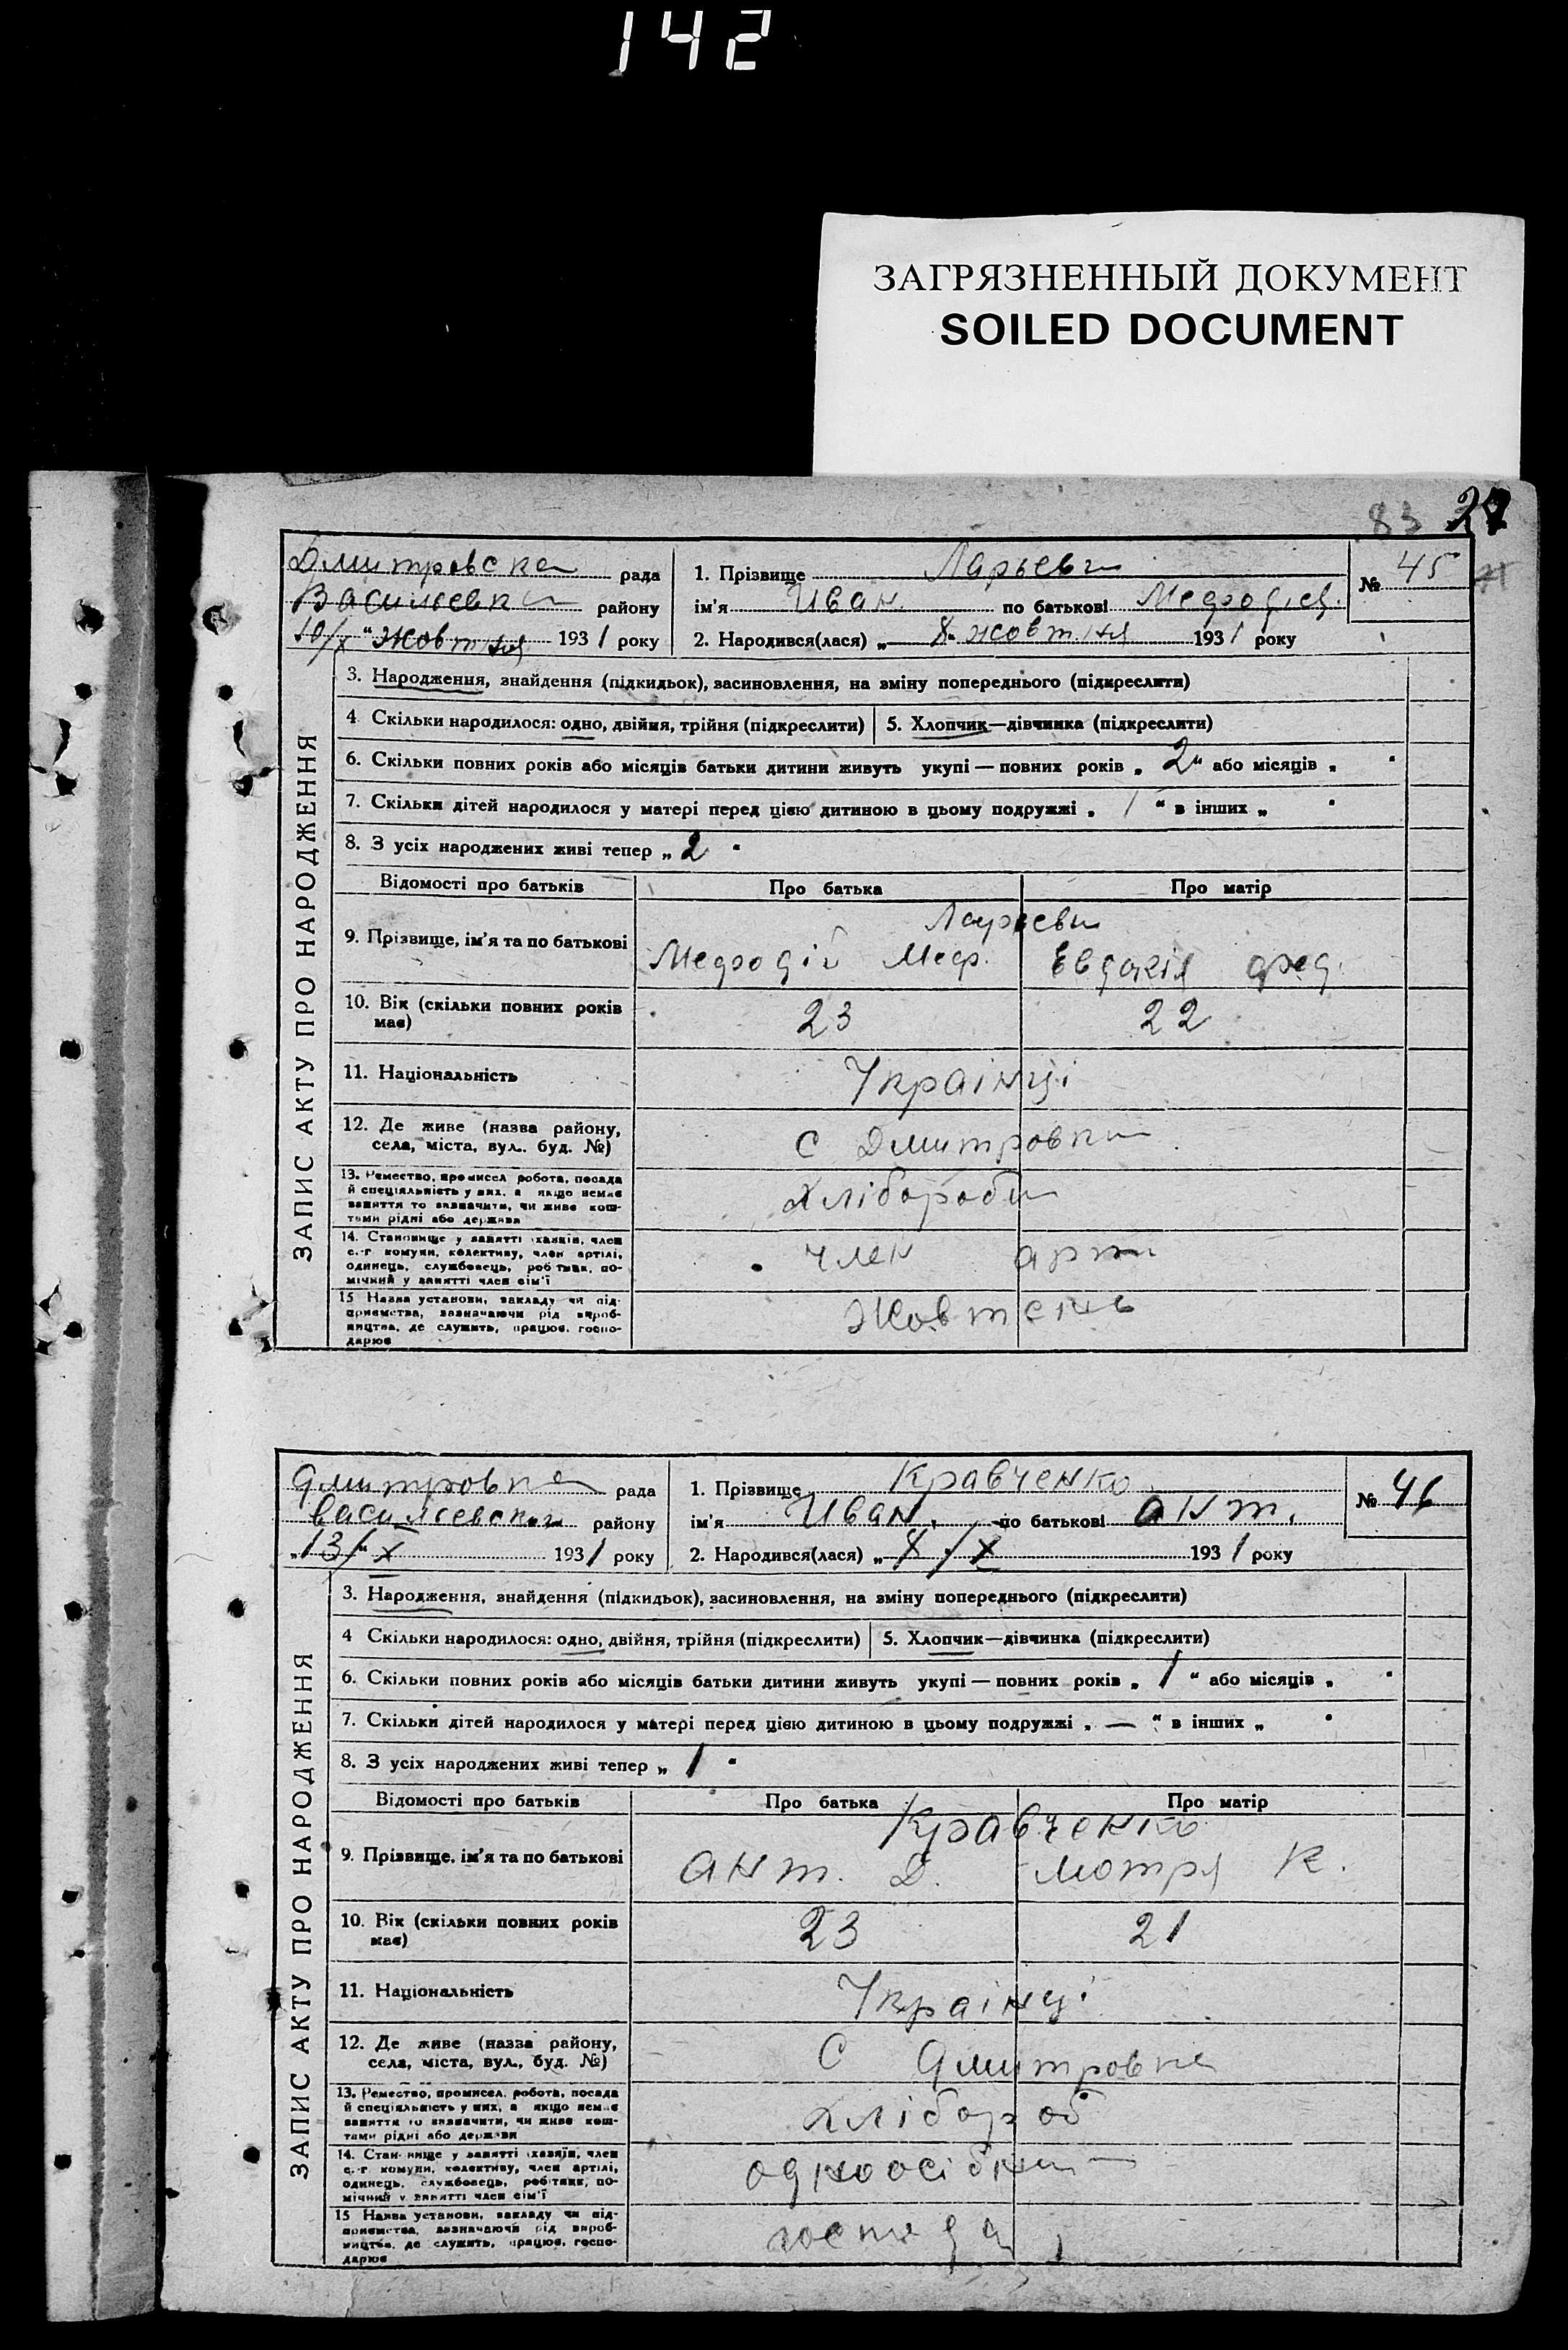 142
ЗАГРЯЗНЕННЫЙ ДОКУМЕНТ
SOILED DOCUMENT
83 27
Дмитровска рада
1. Прізвище Ларьеви
№ 45
Василіевки району
ім'я Иван. по батькові Мефодіев.
10/X “ Жовтня 1931 року
2. Народився(лася) „ 8 “ жовтня 1931 року
ЗАПИС АКТУ ПРО НАРОДЖЕННЯ
3. Народження, знайдення (підкидьок), засиновлення, на зміну попереднього (підкреслити)
4. Скільки народилося: одно, двійня, трійня (підкреслити) 5. Хлопчик—дівчинка (підкреслити)
6. Скільки повних років або місяців батьки дитини живуть укупі — повних років „ 2 “ або місяців „
7. Скільки дітей народилося у матері перед цією дитиною в цьому подружжі „ 1 “ в інших „
8. З усіх народжених живі тепер „ 2 “
Відомості про батьків Про батька Про матір
9. Прізвище, ім'я та по батькові
Ларьеви
Мефодій Меф. Евдокія Фед.
10. Вік (скільки повних років має) 23 22
11. Національність Украінці
12. Де живе (назва району, села, міста, вул. буд. №) с Дмитровки
13. Ремество, промисел робота, посада й спеціяльність у них, а якщо немає заняття то зазначити, чи живе коштами рідні або держави
Хлібороби
14. Становище у занятті хазяїн, член с.-г комуни, колективу, член артілі, одинець, службовець, робітник, помічний у занятті член сім'ї
член арт
15 Назва установи, закладу чи підприємства, зазначаючи рід виробництва, де служить, працює, господарює
Жовтень
Дмитровка рада
1. Прізвище Кравченко
№ 46
Василіевски району
ім'я Иван. по батькові Ант.
„ 13/“ X 1931 року
2. Народився(лася) „ 8 / X 1931 року
ЗАПИС АКТУ ПРО НАРОДЖЕННЯ
3. Народження, знайдення (підкидьок), засиновлення, на зміну попереднього (підкреслити)
4 Скільки народилося: одно, двійня, трійня (підкреслити) 5. Хлопчик—дівчинка (підкреслити)
6. Скільки повних років або місяців батьки дитини живуть укупі — повних років „ 1 “ або місяців „
7. Скільки дітей народилося у матері перед цією дитиною в цьому подружжі „ — “ в інших „
8. З усіх народжених живі тепер „ 1 “
Відомості про батьків Про батька Про матір
9. Прізвище, ім'я та по батькові
Кравченко
Ант. Д. Мотря К.
10. Вік (скільки повних років має) 23 21
11. Національність Украінці
12. Де живе (назва району, села, міста, вул., буд. №) С Дмитровка
13. Ремество, промисел, робота, посада й спеціяльність у них, а якщо немає заняття то зазначити, чи живе коштами рідні або держави
Хлібороб
14. Становище у занятті хазяїн, член с.-г комуни, колективу, член артілі, одинець, службовець, робітник, помічний у занятті член сім'ї
одноосібн
15 Назва установи, закладу чи підприємства, зазначаючи рід виробництва, де служить, працює, господарює